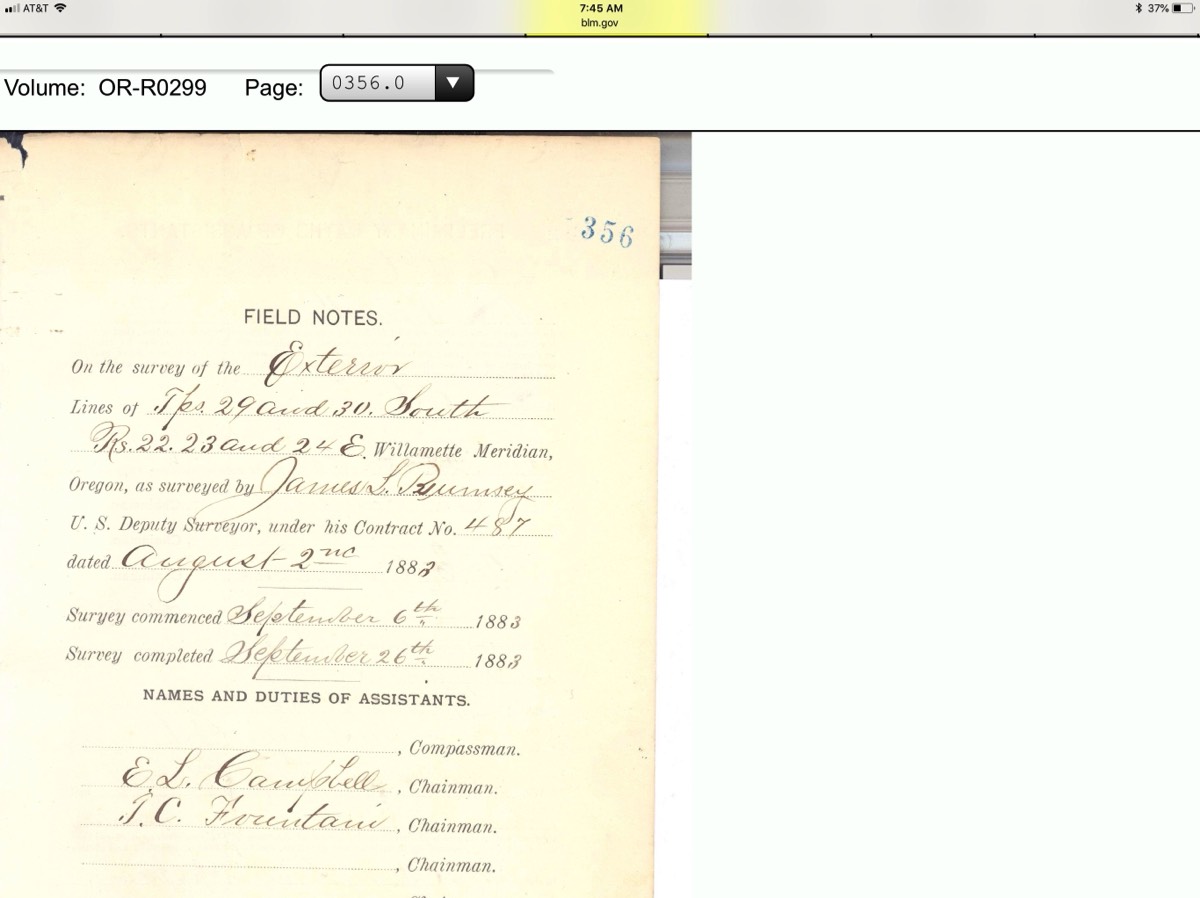 AT&T 7:45 AM 37%
blm.gov
Volume: OR-R0299 Page: 0356.0
356
FIELD NOTES.
On the survey of the Exterior
Lines of Tps. 29 and 30. South
Rs. 22. 23 and 24 E. Willamette Meridian,
Oregon, as surveyed by James L. Rumsey
U. S. Deputy Surveyor, under his Contract No. 487
dated August 2nd 1883
Suryey commenced September 6th 1883
Survey completed September 26th 1883
NAMES AND DUTIES OF ASSISTANTS.
, Compassman.
E. L. Campbell , Chainman.
T. C. Fountain , Chainman.
, Chainman.